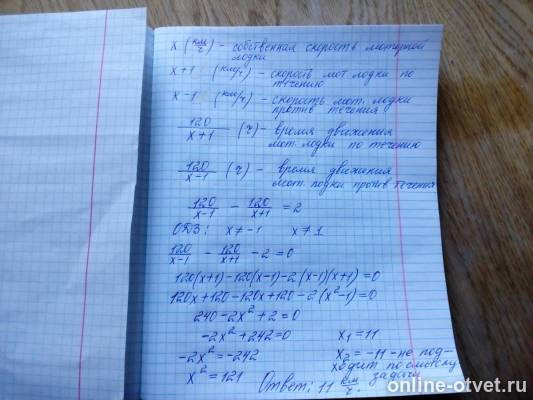 x (км/ч) - собственная скорость моторной
лодки
x+1 (км/ч) - скорость мот. лодки по
течению
x-1 (км/ч) - скорость мот. лодки
против течения
120/(x+1) (ч) - время движения
мот. лодки по течению
120/(x-1) (ч) - время движения
мот. лодки против течения
120/(x-1) - 120/(x+1) = 2
ОДЗ: x≠-1 x≠1
120/(x-1) - 120/(x+1) - 2 = 0
120(x+1)-120(x-1)-2(x-1)(x+1)=0
120x+120-120x+120-2(x²-1)=0
240-2x²+2=0
-2x²+242=0 x₁=11
-2x²=-242 x₂=-11 - не под-
ходит по смыслу
x²=121 задачи
Ответ: 11 км/ч.
online-otvet.ru